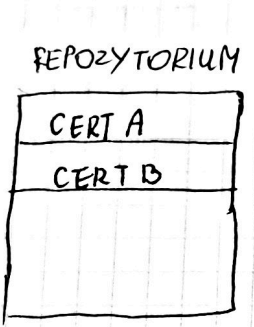 REPOZYTORIUM
CERT A
CERT B